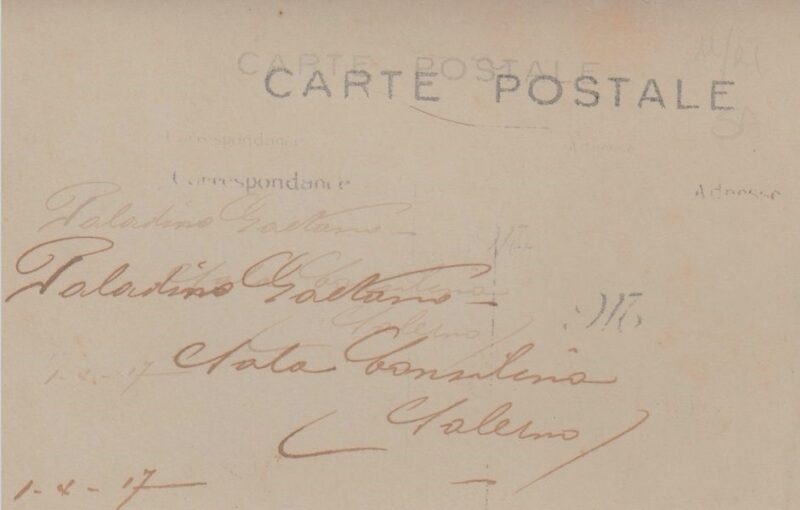 CARTE POSTALE
Correspondance Adresse
Paladino Gaetano -
Sala Consilina
(Salerno)
1-X-17